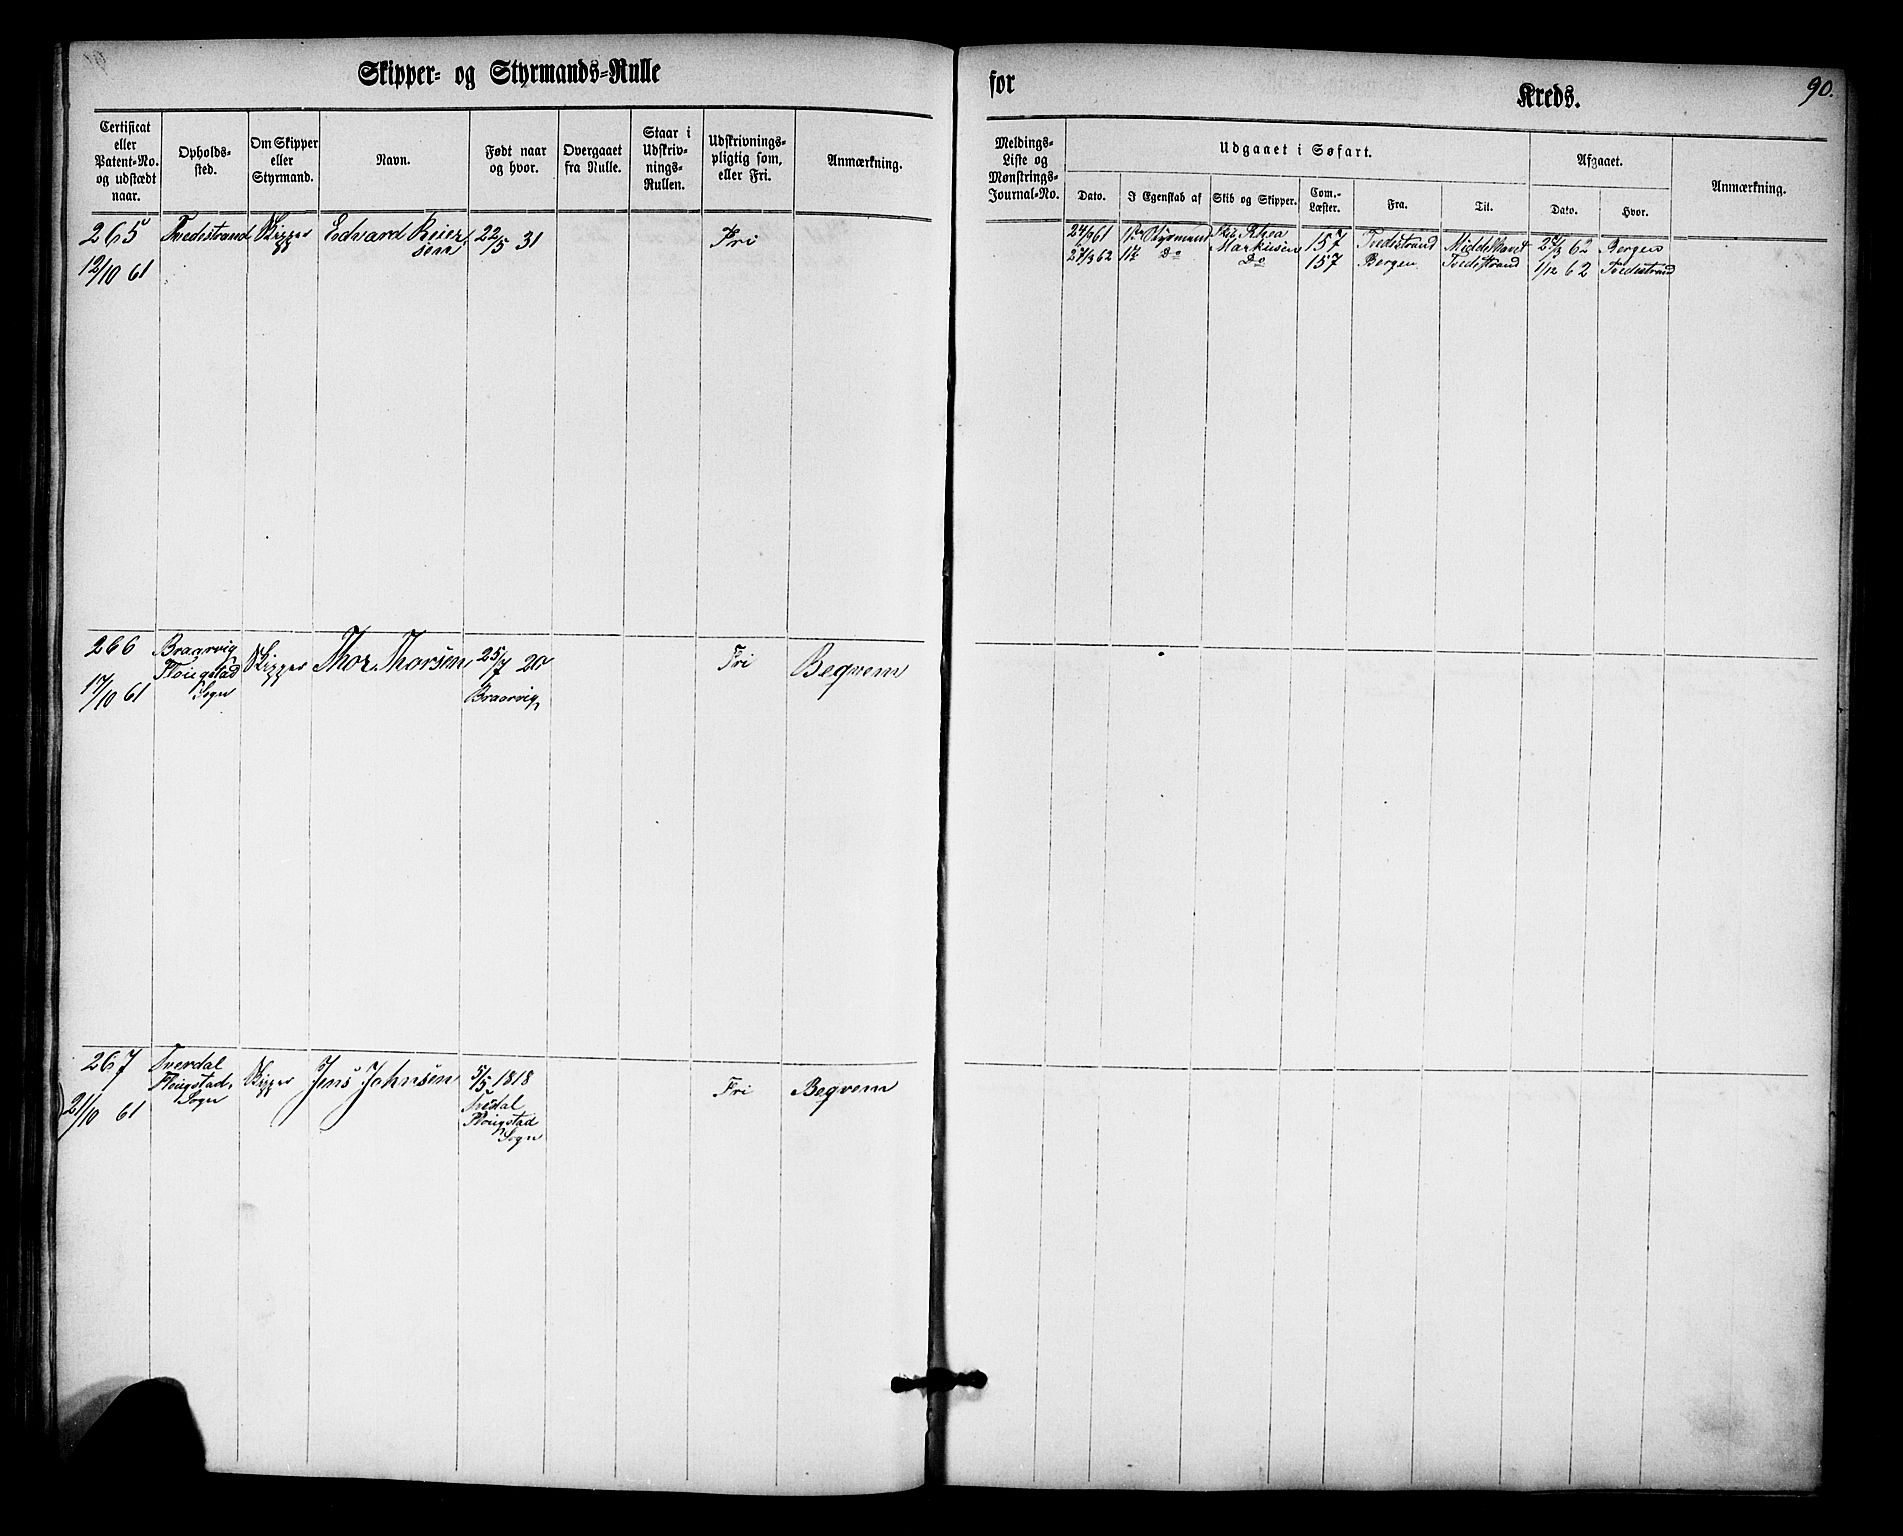 Skipper- og Styrmands-Rulle
for
Kreds.
90.
Certificat eller Patent-No. og udstædt naar.
Opholds-sted.
Om Skipper eller Styrmand.
Navn.
Født naar og hvor.
Overgaaet fra Rulle.
Staar i Udskriv-nings-Rullen.
Udskrivnings-pligtig som, eller Fri.
Anmærkning.
Meldings-Liste og Mønstrings-Journal-No.
Udgaaet i Søfart.
Dato.
I Egenskab af
Skib og Skipper.
Com.-Læster.
Fra.
Til.
Afgaaet.
Dato.
Hvor.
Anmærkning.
265
12/10 61
Tvedestrand
Skipper
Edvard Reier
sen
22/5 31
Fri
24/9 61 1ste Styrmand Thea 157 Tvedestrand Middelhavet 24/3 62 Bergen
27/3 62 Do Markusen Do 157 Bergen Tvedestrand 1/12 62 Tvedestrand
266
17/10 61
Braarvig
Flougstad
Sogn
Skipper
Thor Thorsen
25/7 20
Braarvig
Fri
Begvem
267
21/10 61
Tverdal
Flougstad
Sogn
Skipper
Jens Johnsen
5/5 1818
Tvedal
Flougstad
Sogn
Fri
Begvem